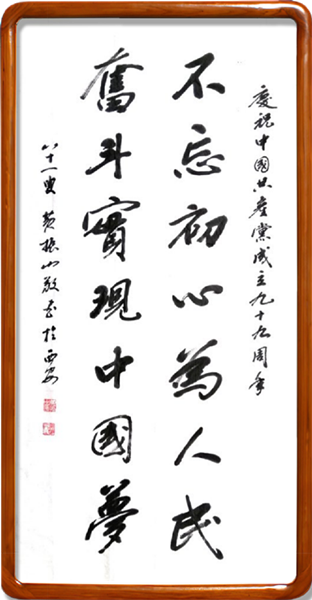 慶祝中國共產黨成立九十九周年
不忘初心為人民
奮斗實現中國夢
八十一叟 黄振山敬书于西安